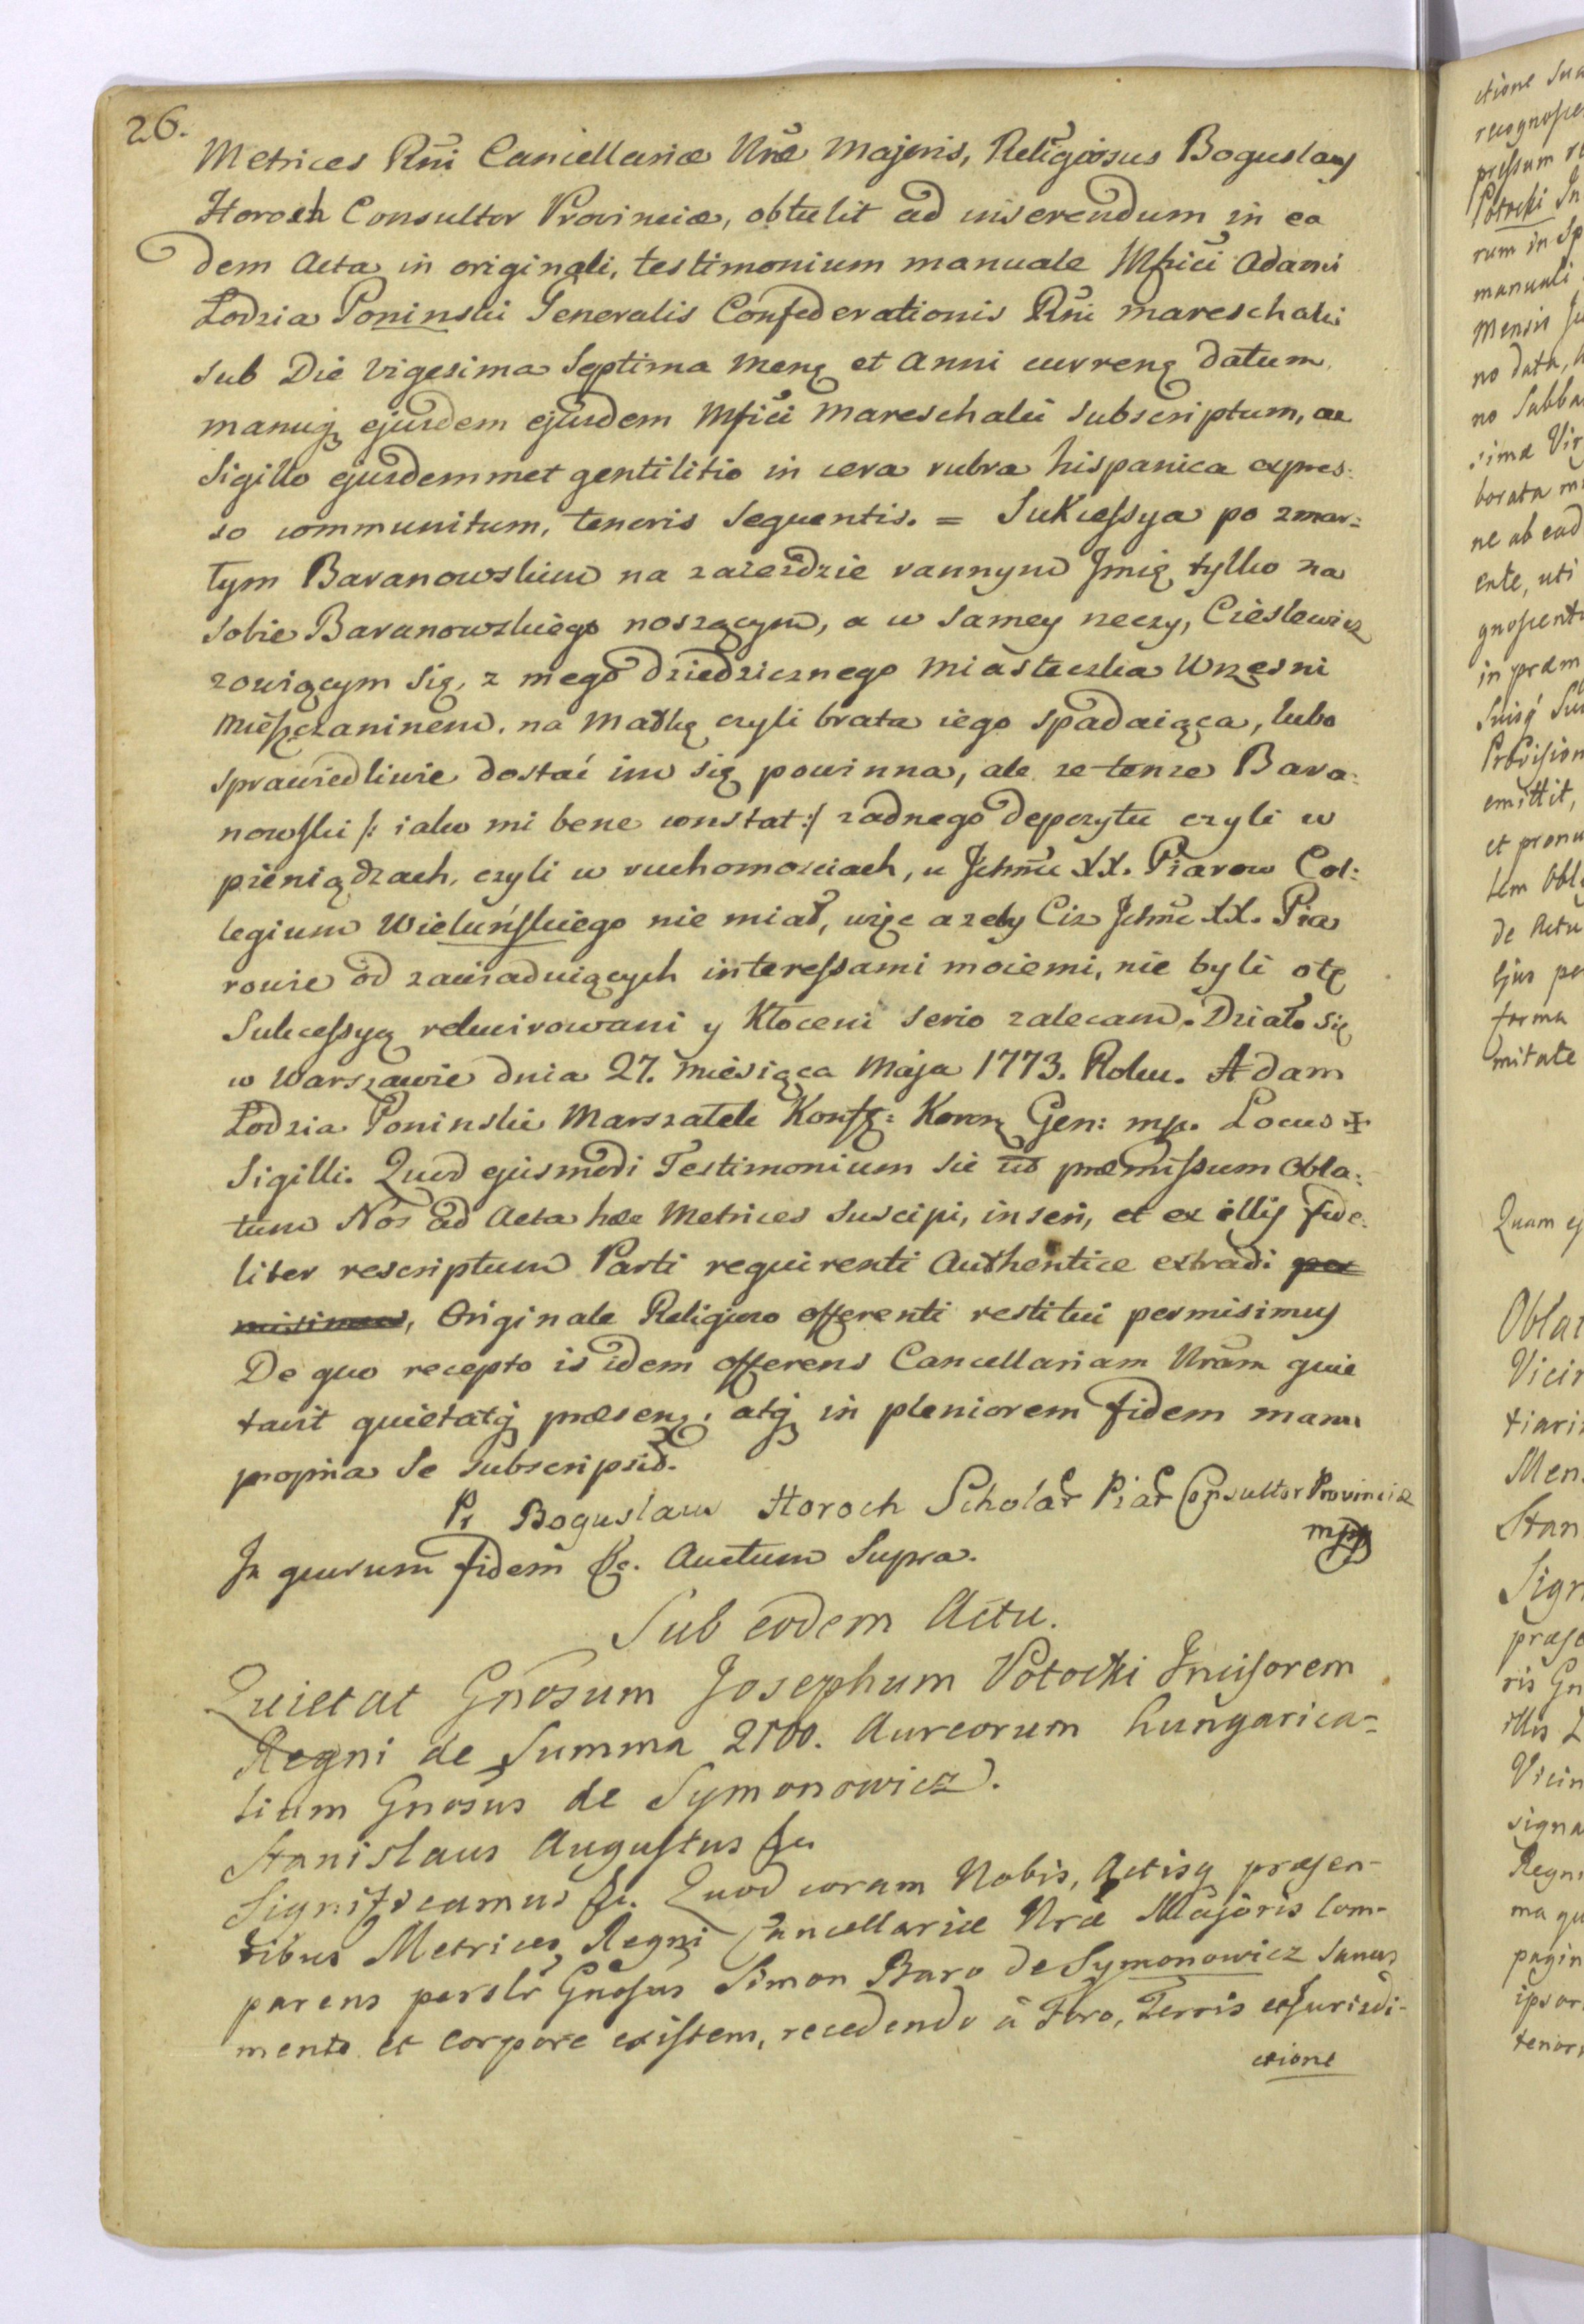 26.
Metrices Rñi Cancellariæ Nræ Majoris, Religiosus Boguslaus
Horoch Consultor Provinciæ, obtulit ad inserendum in ea
dem Acta in originali, testimonium manuale Mfici Adami
Łodzia Poninski Generalis Confederationis Rñi Mareschalci
sub Die vigesima Septima Mensꝫ et Anni currenꝫ datum,
manuqꝫ ejusdem ejusdem Mfici Mareschalci subscriptum, ac
Sigillo ejusdemmet gentilitio in cera rubra hispanica expres:
so communitum, tenoris sequentis. = Sukcessya po zmar:
tym Baranowskim na zaiezdzie rannym Jmię tylko na
sobie Baranowskiego noszącym, a w samey rzeczy, Cieslewicz
zowiącym się, z mego dziedzicznego Miasteczka Wrzesni
Mieszczaninem, na Matkę czyli brata iego spadaiąca, lubo
sprawiedliwie dostać im się powinna, ale ze tenze Bara:
nowski /: iako mi bene constat :/ zadnego depozytu czyli w
pieniądzach, czyli w ruchomosciach, u Jchmć XX. Piarow Col:
legium Wieluńskiego nie miał, więc azeby Ciz Jchmć XX. Pia
rowie od zawiaduiących interessami moiemi, nie byli o tę
Sukcessyą rekwirowani y kłoceni serio zalecam. Działo się
w Warszawie dnia 27. Miesiąca Maja 1773. Roku. Adam
Łodzia Poninski Marszałek Konfꝫ: Koronꝫ Gen: mp. Locus ✠
Sigilli. Quod ejusmodi Testimonium sic ut præmissum obla:
tum Nos ad Acta hæc Metrices suscipi, inseri, et ex illis fide:
liter rescriptum Parti requirenti Authentice extradi per
misimus, Originale Religioso offerenti restitui permisimus
De quo recepto is idem offerens Cancellariam Nram quie
tavit quietatqꝫ præsenꝫ, atqꝫ in pleniorem fidem manu
propria se subscripsit.
Pr Boguslaus Horoch Scholar Piar Consultor Provinciæ
mpp
In quorum fidem &c. Actum Supra.
Sub eodem Actu.
Quietat Gnosum Josephum Potocki Incisorem
Regni de Summa 2500. Aureorum hungarica-
lium Gnosus de Symonowicz.
Stanislaus Augustus &c.
Significamus &c. Quod coram Nobis, Actisqꝫ præsen-
tibus Metrices Regni Cancellariæ Nræ Majoris com-
parens persolr Gnosus Simon Baro de Symonowicz Sanus
mente et corpore existem, recedendo à Foro, Terris et Jurisdi-
ctione